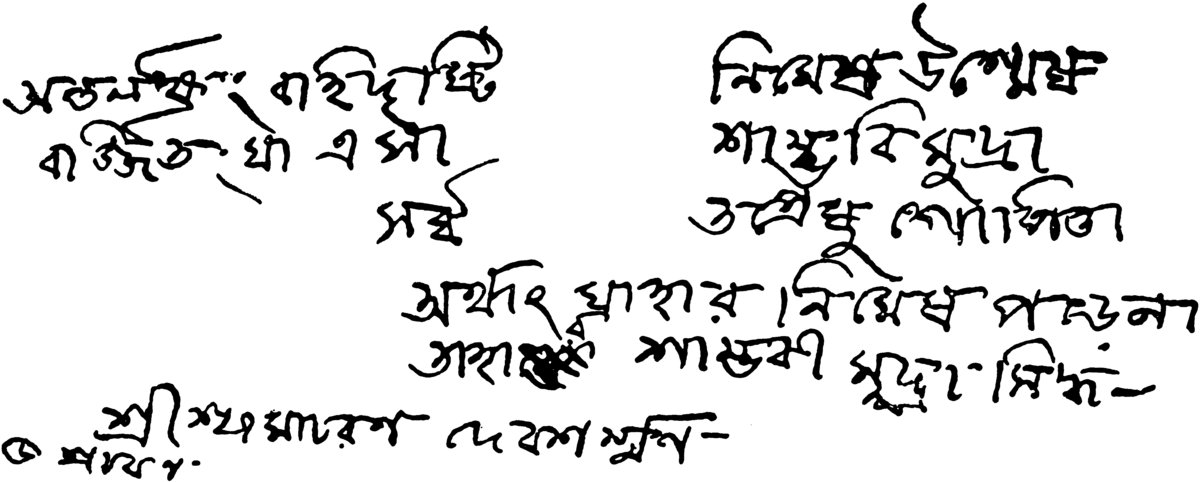 অন্তর্লক্ষ্যং বহির্দৃষ্টি নিমেষ উন্মেষ
বর্জ্জিত যা এ সা শাম্ভবি মুদ্রা
সর্ব্ব তন্ত্রেষু গোপিতা
অর্থাৎ যাহার নিমেষ পড়েনা
তাহার শাম্ভবী মুদ্রা সিদ্ধ—
শ্রীশ্যামাচরণ দেবশর্ম্মণ—
শ্রাবণ